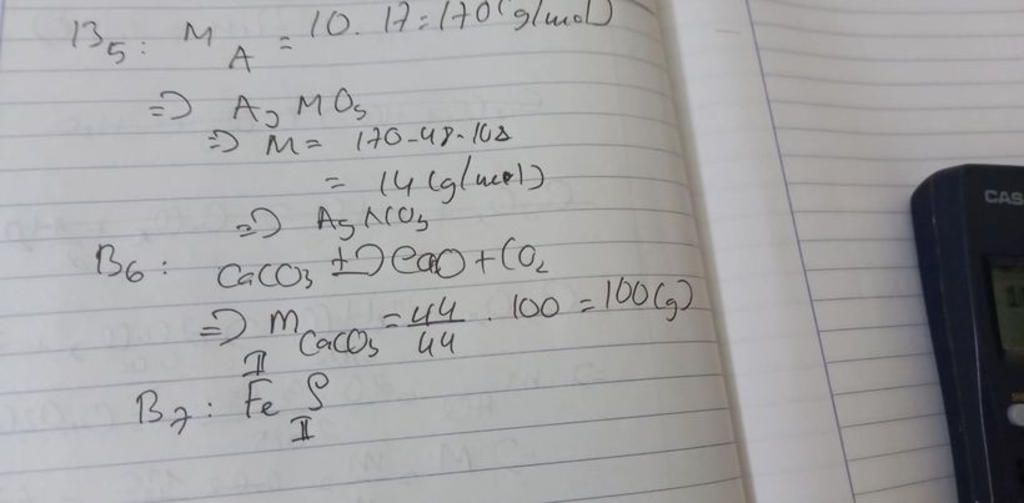 B5: MA = 10.17=170(g/mol)
=> AgMO3
=> M= 170-48-108
= 14 (g/mol)
=> AgNO3
B6: CaCO3 t=> CaO + CO2
=> mCaCO3 = 44/44 . 100 = 100(g)
II
B7: Fe S
II
CAS